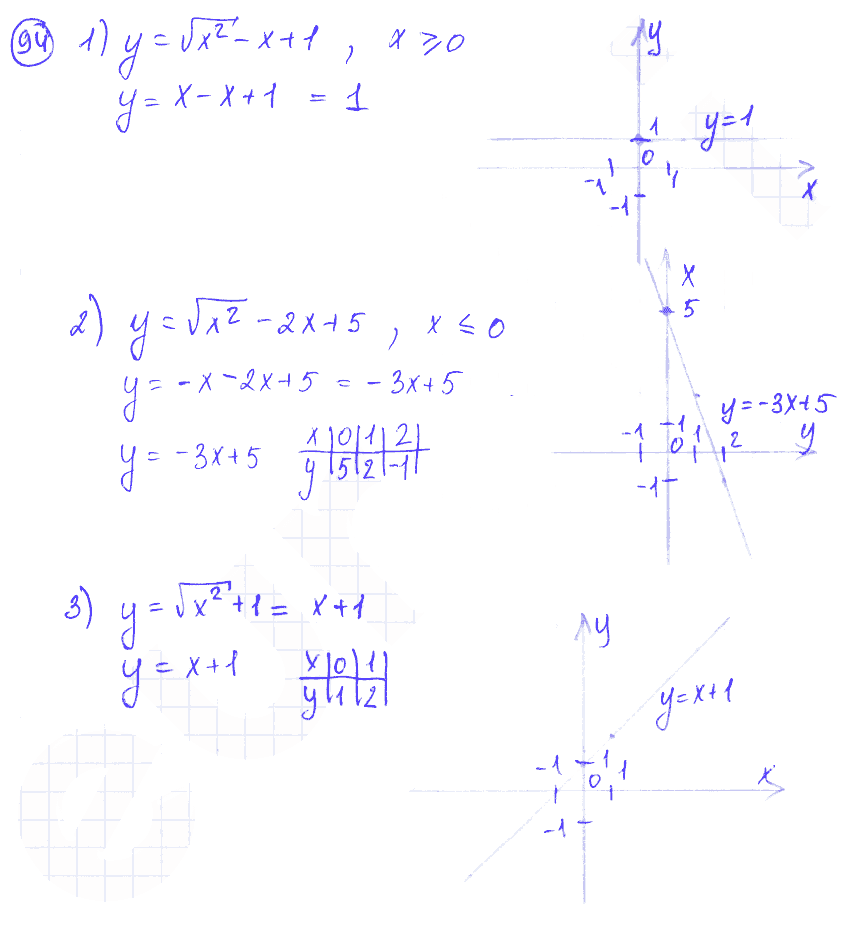 94 1) y = √x² - x + 1 , x ⩾ 0
y = x - x + 1 = 1
y
1
y = 1
0
-1 1
x
-1
2) y = √x² - 2x + 5 , x ⩽ 0
y = -x - 2x + 5 = -3x + 5
y = -3x + 5
x | 0 | 1 | 2 |
y | 5 | 2 | -1 |
x
5
y = -3x + 5
-1 1 1 y
0 2
-1
3) y = √x² + 1 = x + 1
y = x + 1
x | 0 | 1 |
y | 1 | 2 |
y
y = x + 1
-1 1 1 x
0
-1